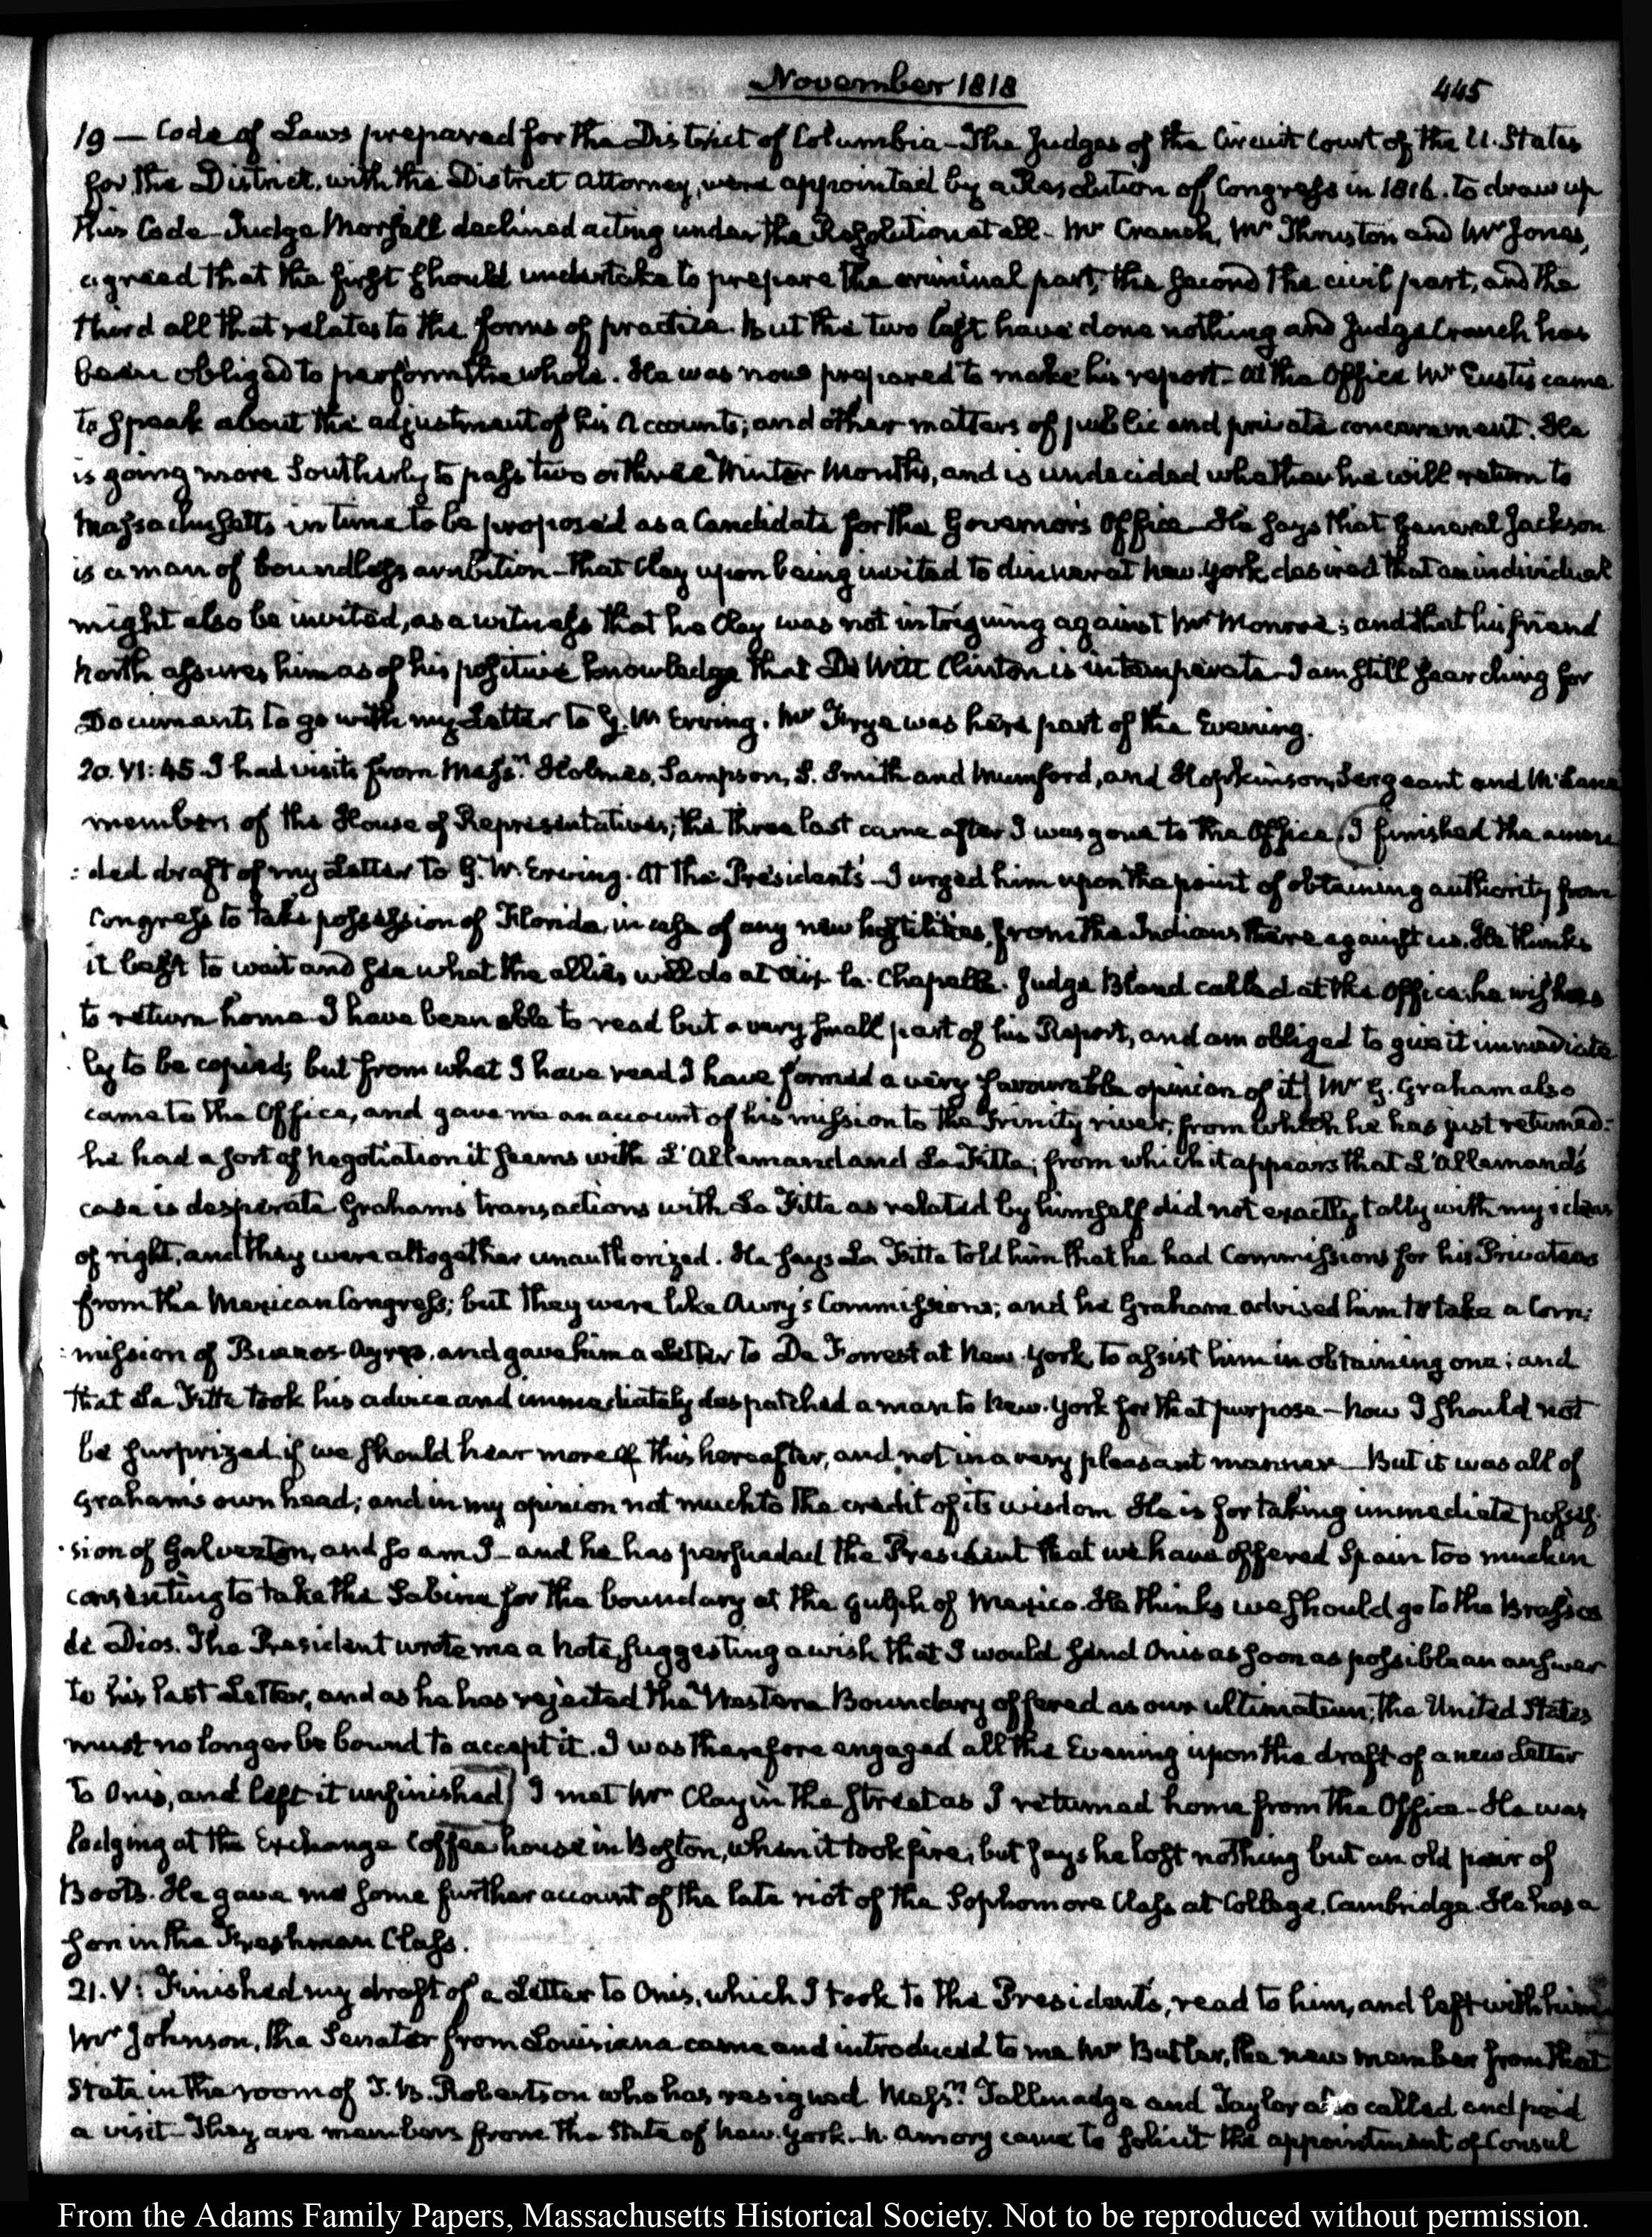 November 1818
445
19 — Code of Laws prepared for the District of Columbia - The Judges of the Circuit Court of the U. States
for the District, with the District Attorney, were appointed by a Resolution of Congress in 1816. to draw up
this Code - Judge Morsell declined acting under the Resolution at all - Mr Cranch, Mr Thruston and Mr Jones,
agreed that the first should undertake to prepare the criminal part, the second the civil part, and the
third all that relates to the forms of practice. But the two last have done nothing and Judge Cranch has
been obliged to perform the whole. He was now prepared to make his report - At the Office Mr Eustis came
to speak about the adjustment of his Accounts; and other matters of public and private concernment. He
is going more Southerly to pass two or three Winter Months, and is undecided whether he will return to
Massachusetts in time to be proposed as a Candidate for the Governor's Office - He says that General Jackson
is a man of boundless ambition - that Clay upon being invited to dinner at New-York desired that an individual
might also be invited, as a witness that he Clay was not intriguing against Mr Monroe; and that his friend
North assures him as of his positive knowledge that De Witt Clinton is intemperate - I am still searching for
Documents to go with my Letter to G. W. Erving. Mr Frye was here part of the Evening.
20. VI:45. I had visits from Messrs. Holmes, Sampson, S. Smith and Mumford, and Hopkinson, Sergeant and McLane
members of the House of Representatives; the three last came after I was gone to the Office. I finished the amen
:ded draft of my Letter to G. W. Erving. At the President's - I urged him upon the point of obtaining authority from
Congress to take possession of Florida, in case of any new hostilities, from the Indians there against us. He thinks
it best to wait and see what the allies will do at Aix-la-Chapelle. Judge Bland called at the Office; he wishes
to return home - I have been able to read but a very small part of his Report, and am obliged to give it immediate
ly to be copied; but from what I have read I have formed a very favourable opinion of it] Mr G. Graham also
came to the Office, and gave me an account of his mission to the Trinity river, from which he has just returned:
he had a sort of Negotiation it seems with L'Allemand and La Fitte; from which it appears that L'Allemand's
case is desperate. Graham's transactions with La Fitte as related by himself did not exactly tally with my ideas
of right, and they were altogether unauthorized. He says La Fitte told him that he had Commissions for his Privateers
from the Mexican Congress; but they were like Aury's Commissions; and he Graham advised him to take a Com:
:mission of Buenos-Ayres, and gave him a Letter to De Forrest at New-York, to assist him in obtaining one; and
that La Fitte took his advice and immediately despatched a man to New-York for that purpose - Now I should not
be surprized if we should hear more of this hereafter, and not in a very pleasant manner - But it was all of
Graham's own head; and in my opinion not much to the credit of its wisdom. He is for taking immediate posses
sion of Galvezton, and so am I - and he has persuaded the President that we have offered Spain too much in
consenting to take the Sabine for the boundary at the Gulph of Mexico. He thinks we should go to the Brassos
de Dios. The President wrote me a Note, suggesting a wish that I would send Onis as soon as possible an answer
to his last Letter, and as he has rejected the Western Boundary offered as our ultimatum, the United States
must no longer be bound to accept it. I was therefore engaged all the Evening upon the draft of a new Letter
to Onis, and left it unfinished] I met Mr Clay in the Street as I returned home from the Office - He was
lodging at the Exchange Coffee house in Boston, when it took fire; but says he lost nothing but an old pair of
Boots. He gave me some further account of the late riot of the Sophomore Class at College, Cambridge. He has a
son in the Freshman Class.
21. V: Finished my draft of a Letter to Onis, which I took to the President's, read to him, and left with him.
Mr Johnson, the Senator from Louisiana came and introduced to me Mr Butler, the new member from that
State in the room of T. B. Robertson who has resigned. Messrs. Tallmadge and Taylor also called and paid
a visit - They are members from the State of New-York. N. Amory came to solicit the appointment of Consul
From the Adams Family Papers, Massachusetts Historical Society. Not to be reproduced without permission.